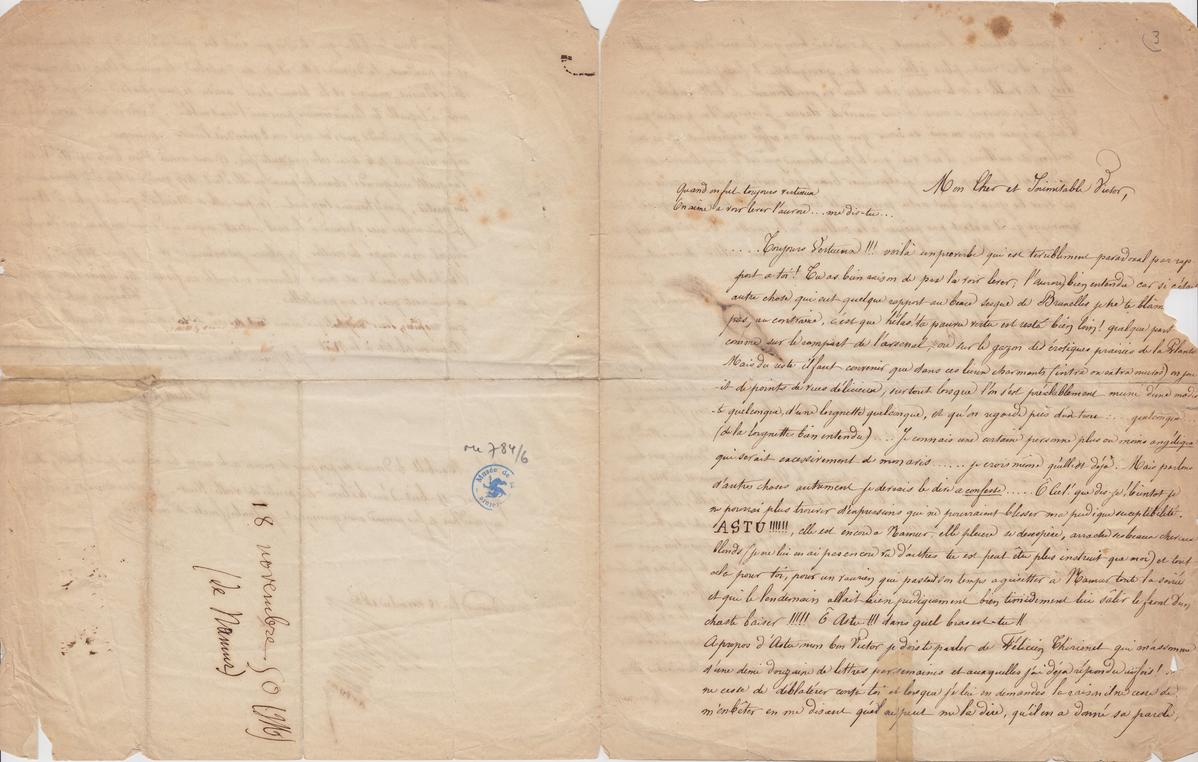 3
Mon Cher et Inimitable Victor,
Quand on fut toujours vertueux
On aime a voir lever l'aurore... me dis-tu...
..... Toujours Vertueux !!! voilà un proverbe qui est terriblement paradoxal par rap
port a toi! Tu as bien raison de pas la voir lever, l'aurore bien entendu car si c'était
autre chose qui eut quelque rapport au beau sexe de Bruxelles je ne te blâm
pas, au contraire, c'est que hélas! ta pauvre vertu est resté bien loin! quelque part
comme sur le rempart de l'arsenal, ou sur le gazon des érotiques prairies de la Plante
Mais du reste il faut convenir que dans ces lieux charmants (intra ou extra muros) on jou
it de points de vues délicieux, surtout lorsque l'on s'est préalablement muni d'une mod
te quelconque, d'une lorgnette quelconque, et qu'on regarde près d'un tire... quelconque
(de la lorgnette bien entendu)... Je connais une certaine personne plus ou moins angélique
qui serait excessivement de mon avis...... je crois même qu'elle l'est déjà. Mais parlons
d'autres choses autrement je devrais le dire a confesse...... O Ciel! que dis-je! bientôt je
ne pourrai plus trouver d'expressions qui ne pourraient blesser ma pudique susceptibilité.
ASTU !!!!!!, elle est encore a Namur, elle pleure se desespère, arrache ses beaux cheveux
blonds (je ne lui en ai pas encore vu d'autres tu est peut être plus instruit que moi) et tout
cela pour toi, pour un vaurien qui passait son temps a guetter à Namur toute la soirée
et qui le lendemain allait bien pudiquement bien timidement lui salir le front d'un
chaste baiser !!!!! O Astu !!! dans quel bras est-tu !!
Apropos d'Astu mon bon Victor je dois te parler de Félicien Thirionet qui m'assomme
d'une demi douzaine de lettres par semaines et auxquelles j'ai déja répondu un fois! Il
ne cesse de déblatérer contre toi et lorsque je lui en demandes la raison il ne cesse de
m'embêter en me disant qu'il ne peut me la dire, qu'il en a donné sa parole,
ML 784/6
Musée de la
18 novembre 50 (9h6)
(de Namur)